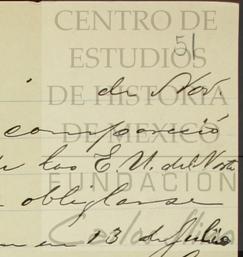 CENTRO DE
ESTUDIOS
DE HISTORIA
DE MEXICO
FUNDACIÓN
51
de Nov.
compareció
las E. U. del Norte
obligarse
en 13 de Julio